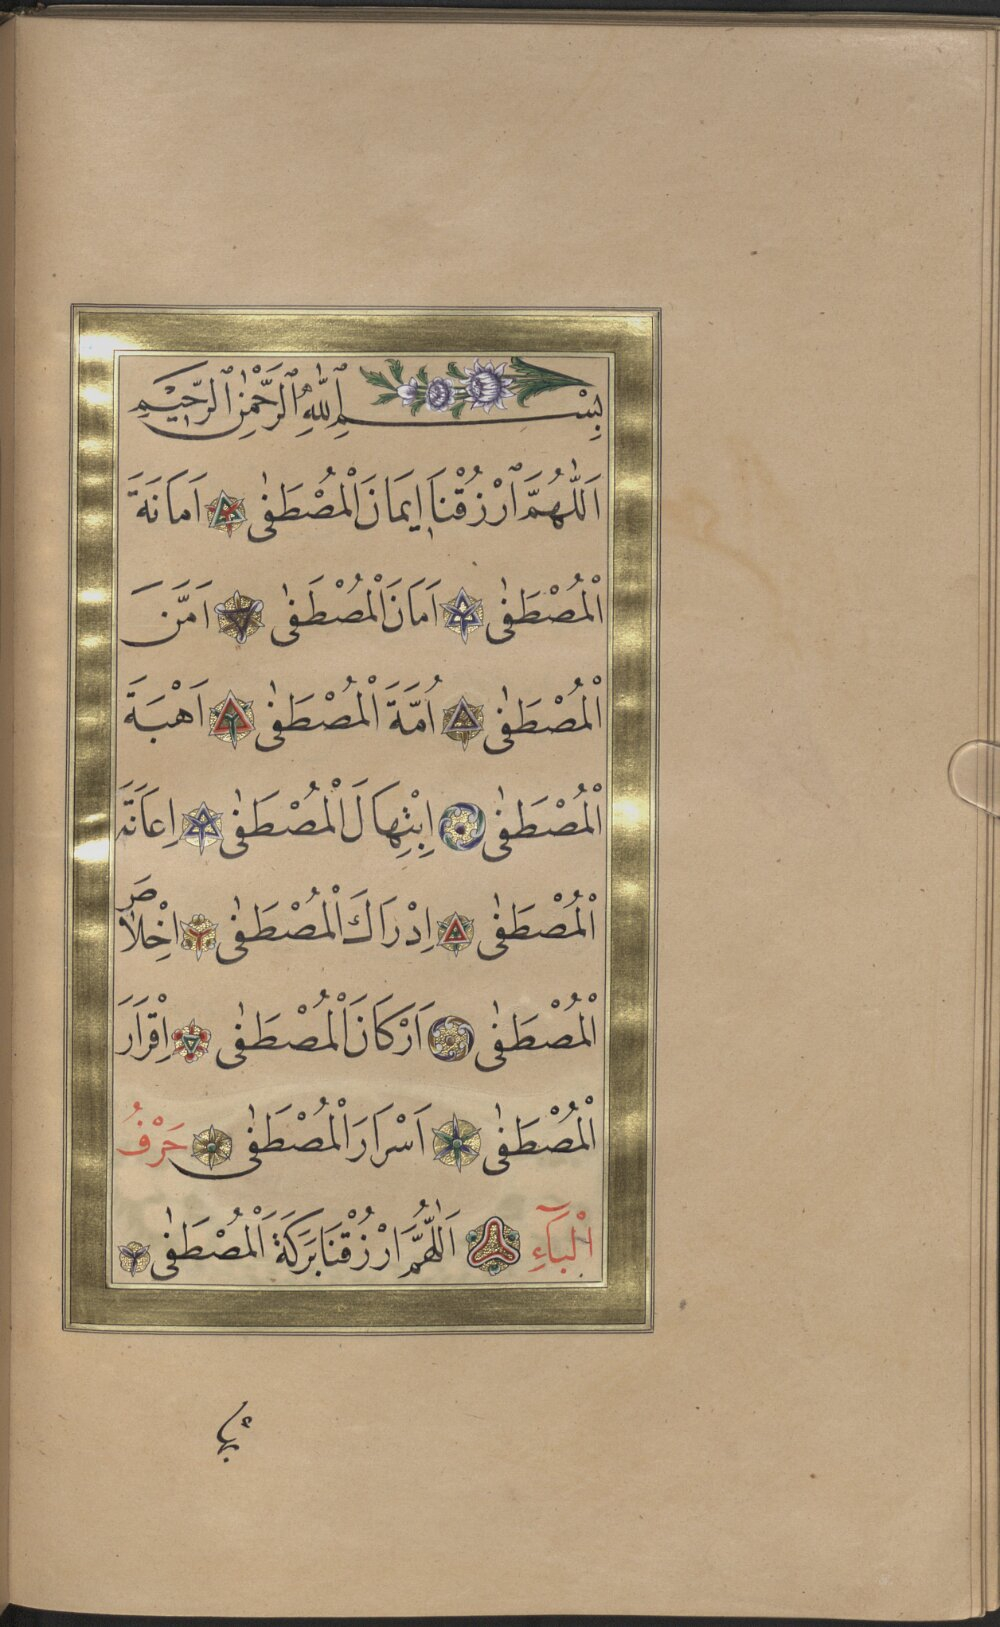 بِسْمِ ٱللّٰهِ ٱلرَّحْمٰنِ ٱلرَّحِيْمِ
اَللّٰهُمَّ ٱرْزُقْنَا اِيمَانَ اْلمُصْطَفٰى اَمَانَةَ
اْلمُصْطَفٰى اَمَانَ اْلمُصْطَفٰى اَمَّنَ
اْلمُصْطَفٰى اُمَّةَ اْلمُصْطَفٰى اَهْبَةَ
اْلمُصْطَفٰى اِبْتِهَالَ اْلمُصْطَفٰى اِعَانَةَ
اْلمُصْطَفٰى اِدْرَاكَ اْلمُصْطَفٰى اِخْلَاصَ
اْلمُصْطَفٰى اَرْكَانَ اْلمُصْطَفٰى اِقْرَارَ
اْلمُصْطَفٰى اَسْرَارَ اْلمُصْطَفٰى حَرْفُ
اْلبَآءِ اَللّٰهُمَّ ارْزُقْنَا بَرَكَةَ اْلمُصْطَفٰى